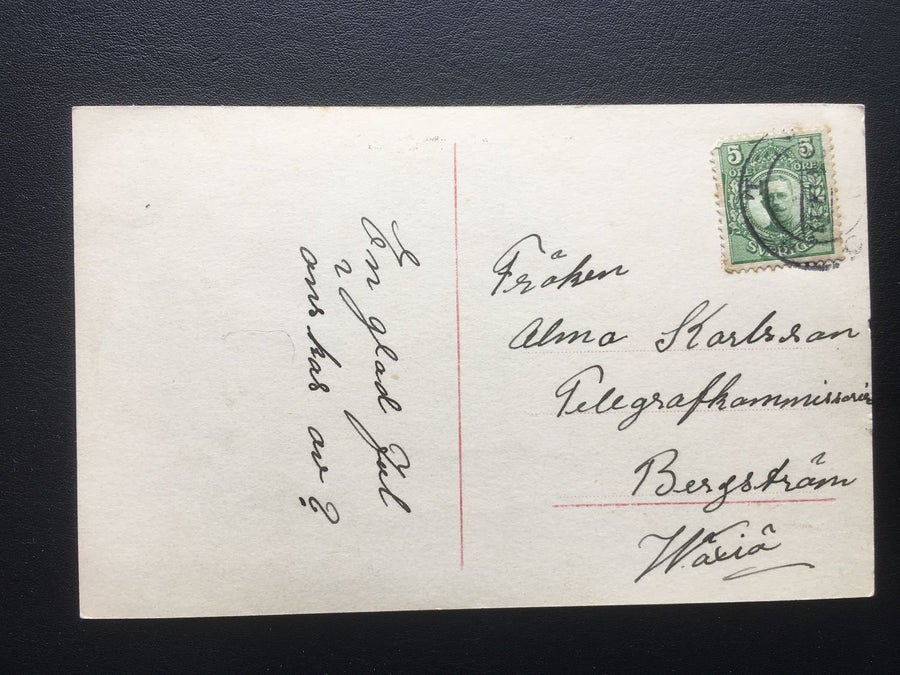 En glad Jul
önskas av ?
5 5
ÖRE ÖRE
SVERIGE
14
Fröken
Alma Karlsson
Telegrafkommissarie
Bergström
Wäxiö